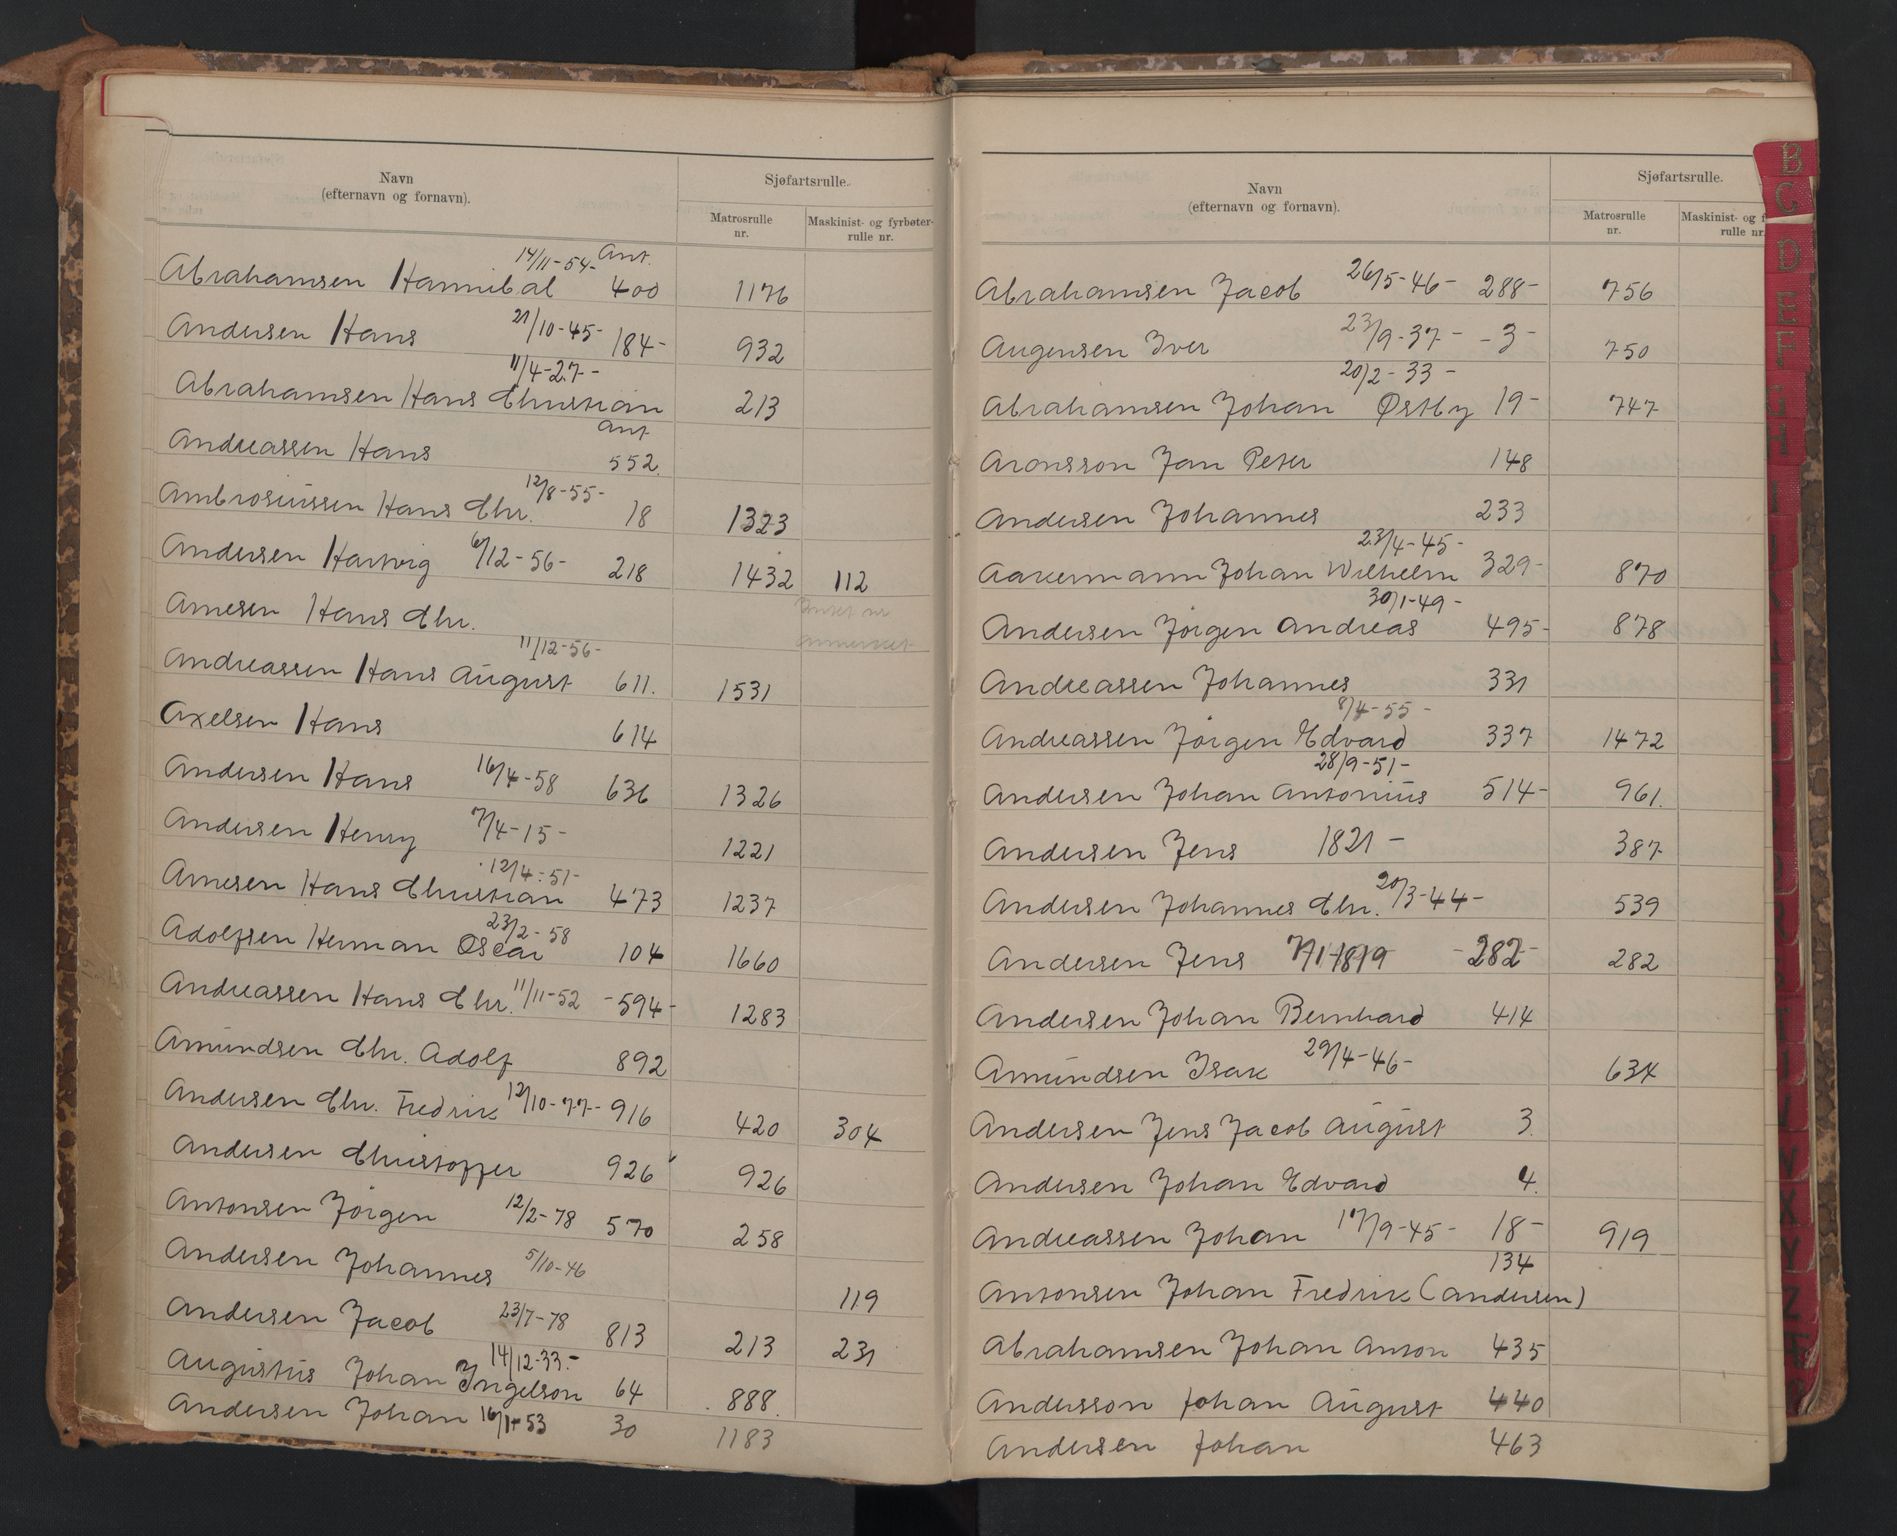 Navn
(efternavn og fornavn).
Sjøfartsrulle.
Matrosrulle
nr.
Maskinist- og fyrbøter-
rulle nr.
14/11-54- Ant.
Abrahamsen Hannibal 400 1176
Andersen Hans 21/10-45- 184- 932
11/4-27-
Abrahamsen Hans Christian 213
Ant
Andreassen Hans 552.
Ambrosiussen Hans Chr. 12/8-55- 18 1323
Andersen Hartvig 6/12-56- 218 1432 112
Arnesen Hans Chr.
11/12-56-
Andreassen Hans August 611. 1531
Axelsen Hans 614
Andersen Hans 16/4-58 636 1326
Andersen Henry 7/4-15- 1221
12/4-51-
Arnesen Hans Christian 473 1237
23/2-58
Adolfsen Herman Oscar 104 1660
Andreassen Hans Chr. 11/11-52 -594- 1283
Amundsen Chr. Adolf 892
Andersen Chr. Fredrik 12/10-77- 916 420 304
Andersen Christoffer 926 926
Antonsen Jørgen 12/2-78 570 258
Andersen Johannes 5/10-46 119
Andersen Jacob 23/7-78 813 213 231
14/12-33.-
Augustus Johan Ingelson 64 888.
Andersen Johan 16/1-53 30 1183
Navn
(efternavn og fornavn).
Sjøfartsrulle.
Matrosrulle
nr.
Maskinist- og f
rulle nr
Abrahamsen Jacob 26/5-46- 288- 756
Augensen Iver 23/9-37- -3- 750
20/2-33-
Abrahamsen Johan Østby 19- 747
Aronsson Jan Peter 148
Andersen Johannes 233
23/4-45-
Aakermann Johan Wilhelm 329- 870
30/1-49-
Andersen Jørgen Andreas 495- 878
Andreassen Johannes 331
8/4-55-
Andreassen Jørgen Edvard 337 1472
28/9-51-
Andersen Johan Antonius 514- 961.
Andersen Jens 1821- 387
Andersen Johannes Chr. 20/3-44- 539
Andersen Jens 7/1-1819 -282- 282
Andersen Johan Bernhard 414
Amundsen Isak 29/4-46- 634
Andersen Jens Jacob August 3.
Andersen Johan Edvard 4.
Andreassen Johan 17/9-45- 18- 919
134
Antonsen Johan Fredrik (Andersen)
Abrahamsen Johan Anton 435
Andersson Johan August 440
Andersen Johan 463
B
C
D
E
F